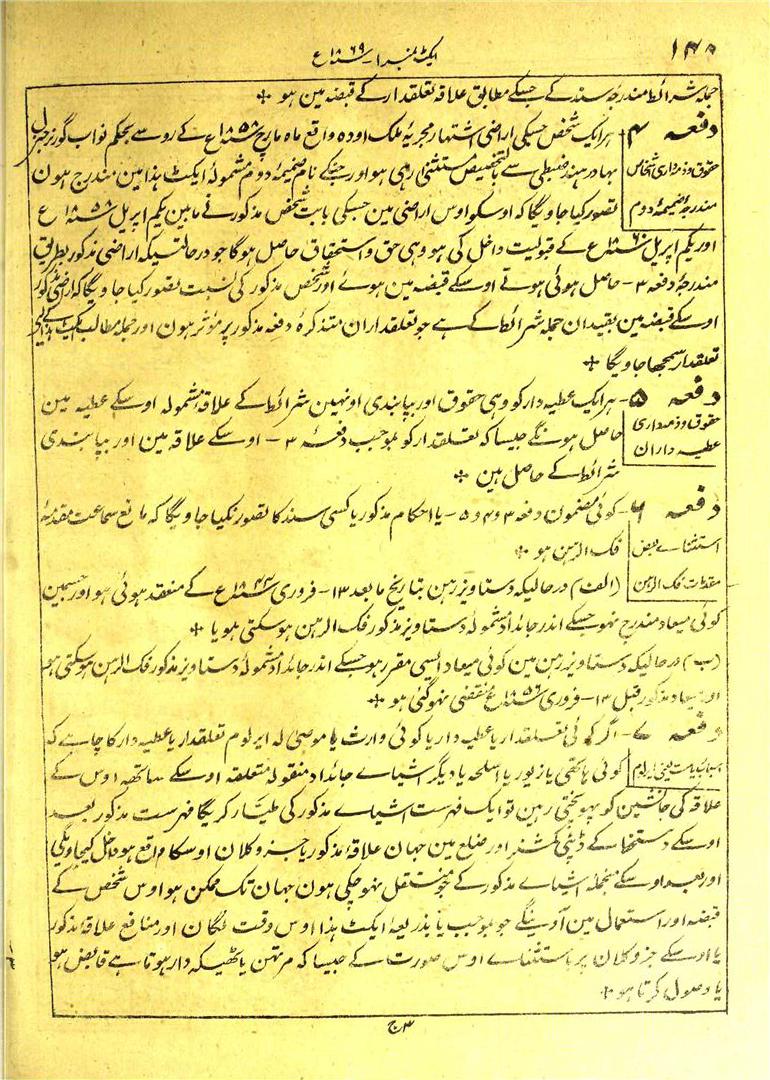 ۱۴۰
ایکٹ نمبر ۱ - سنہ ۱۸۶۹ ع
جملہ شرائط مندرجہ سند کے جسکے مطابق علاقہ تعلقدار کے قبضہ مین ہو +
دفعہ ۴ - ہر ایک شخص جسکی اراضی اشتہار مجریۂ ملک اودہ واقع ماہ مارچ سنہ ۱۸۵۸ ع کے رو سے بحکم نواب گورنر جنرل
حقوق و ذمہ داری اشخاص بہادر ہند ضبطی سے بالتخصیص مستثنیٰ رہی ہو اور جنکے نام ضمیمۂ دوم مشمولۂ ایکٹ ہذا مین مندرج ہون
مندرجۂ ضمیمۂ دوم تصور کیا جاویگا کہ اوسکو اوس اراضی مین جسکی بابت شخص مذکور نے مابین یکم اپریل سنہ ۱۸۵۸ ع
اور یکم اپریل سنہ ۱۸۶۰ ع کے قبولیت داخل کی ہو وہی حق و استحقاق حاصل ہوگا جو در حالتیکہ اراضی مذکور بطریق
مندرجۂ دفعہ ۳ - حاصل ہوئی ہوتے اوسکے قبضہ مین ہوئے اور شخص مذکور کی نسبت تصور کیا جاویگا کہ اراضی مذکور
اوسکے قبضہ مین بقید ان جملہ شرائط کے ہے جو تعلقداران متذکرۂ دفعہ مذکور پر مؤثر ہون اور جملہ مطالب ایکٹ ہذا کے لیے
تعلقدار سمجھا جاویگا +
دفعہ ۵ - ہر ایک عطیہ دار کو وہی حقوق اور بپابندی اونہین شرائط کے علاقہ مشمولہ اوسکے عطیہ مین
حقوق و ذمہ داری حاصل ہونگے جیسا کہ تعلقدار کو بموجب دفعۂ ۳ - اوسکے علاقہ مین اور بپابندی
عطیہ داران شرائط کے حاصل ہین +
دفعہ ۶ - کوئی مضمون دفعہ ۳ و ۴ و ۵ - یا احکام مذکور یا کسی سند کا تصور نکیا جاویگا کہ مانع سماعت مقدمۂ
استثناے بعض فک الرہن ہو +
مقدمات فک الرہن (الف) در حالیکہ دستاویز رہن بتاریخ ما بعد ۱۳ - فروری سنہ ۱۸۴۴ ع کے منعقد ہوئی ہو اور جسمین
کوئی میعاد مندرج نہو جسکے اندر جائداد مشمولۂ دستاویز مذکور فک الرہن ہو سکتی ہو یا +
(ب) در حالیکہ دستاویز رہن مین کوئی میعاد ایسی مقرر ہو جسکے اندر جائداد مشمولۂ دستاویز مذکور فک الرہن ہو سکتی ہو
اور میعاد مذکور قبل ۱۳ - فروری سنہ ۱۸۵۶ ع منقضی نہوگئی ہو +
دفعہ ۷ - اگر کوئی تعلقدار یا عطیہ دار یا کوئی وارث یا موصیٰ لہ ایر لوم تعلقدار یا عطیہ دار کا چاہے کہ
ایر لوم کوئی ہاتھی یا زیور یا اسلحہ یا دیگر اشیاے جائداد منقولہ متعلقہ اوسکے ساتھہ اوس کے
علاقہ کی جانشین کو پہونچتی رہین تو ایک فہرست اشیاے مذکور کی طیار کریگا فہرست مذکور بعد
اوسکے دستخط کے ڈپٹی کمشنر اور ضلع مین جہان علاقۂ مذکور یا جزو کلان اوسکا واقع ہو داخل کیجاویگی
اور بعد اوسکے منجملہ اشیاے مذکور کے جو منتقل نہو چکی ہون جہان تک ممکن ہو اوس شخص کے
قبضہ اور استعمال مین آوینگے جو بموجب یا بذریعۂ ایکٹ ہذا اوس وقت لگان اور منافع علاقۂ مذکور
یا اوسکے جزو کلان پر باستثناے اوس صورت کے جیسا کہ مرتہن یا ٹھیکہ دار ہوتا ہے قابض ہو
یا وصول کرتا ہو +
ج ۳